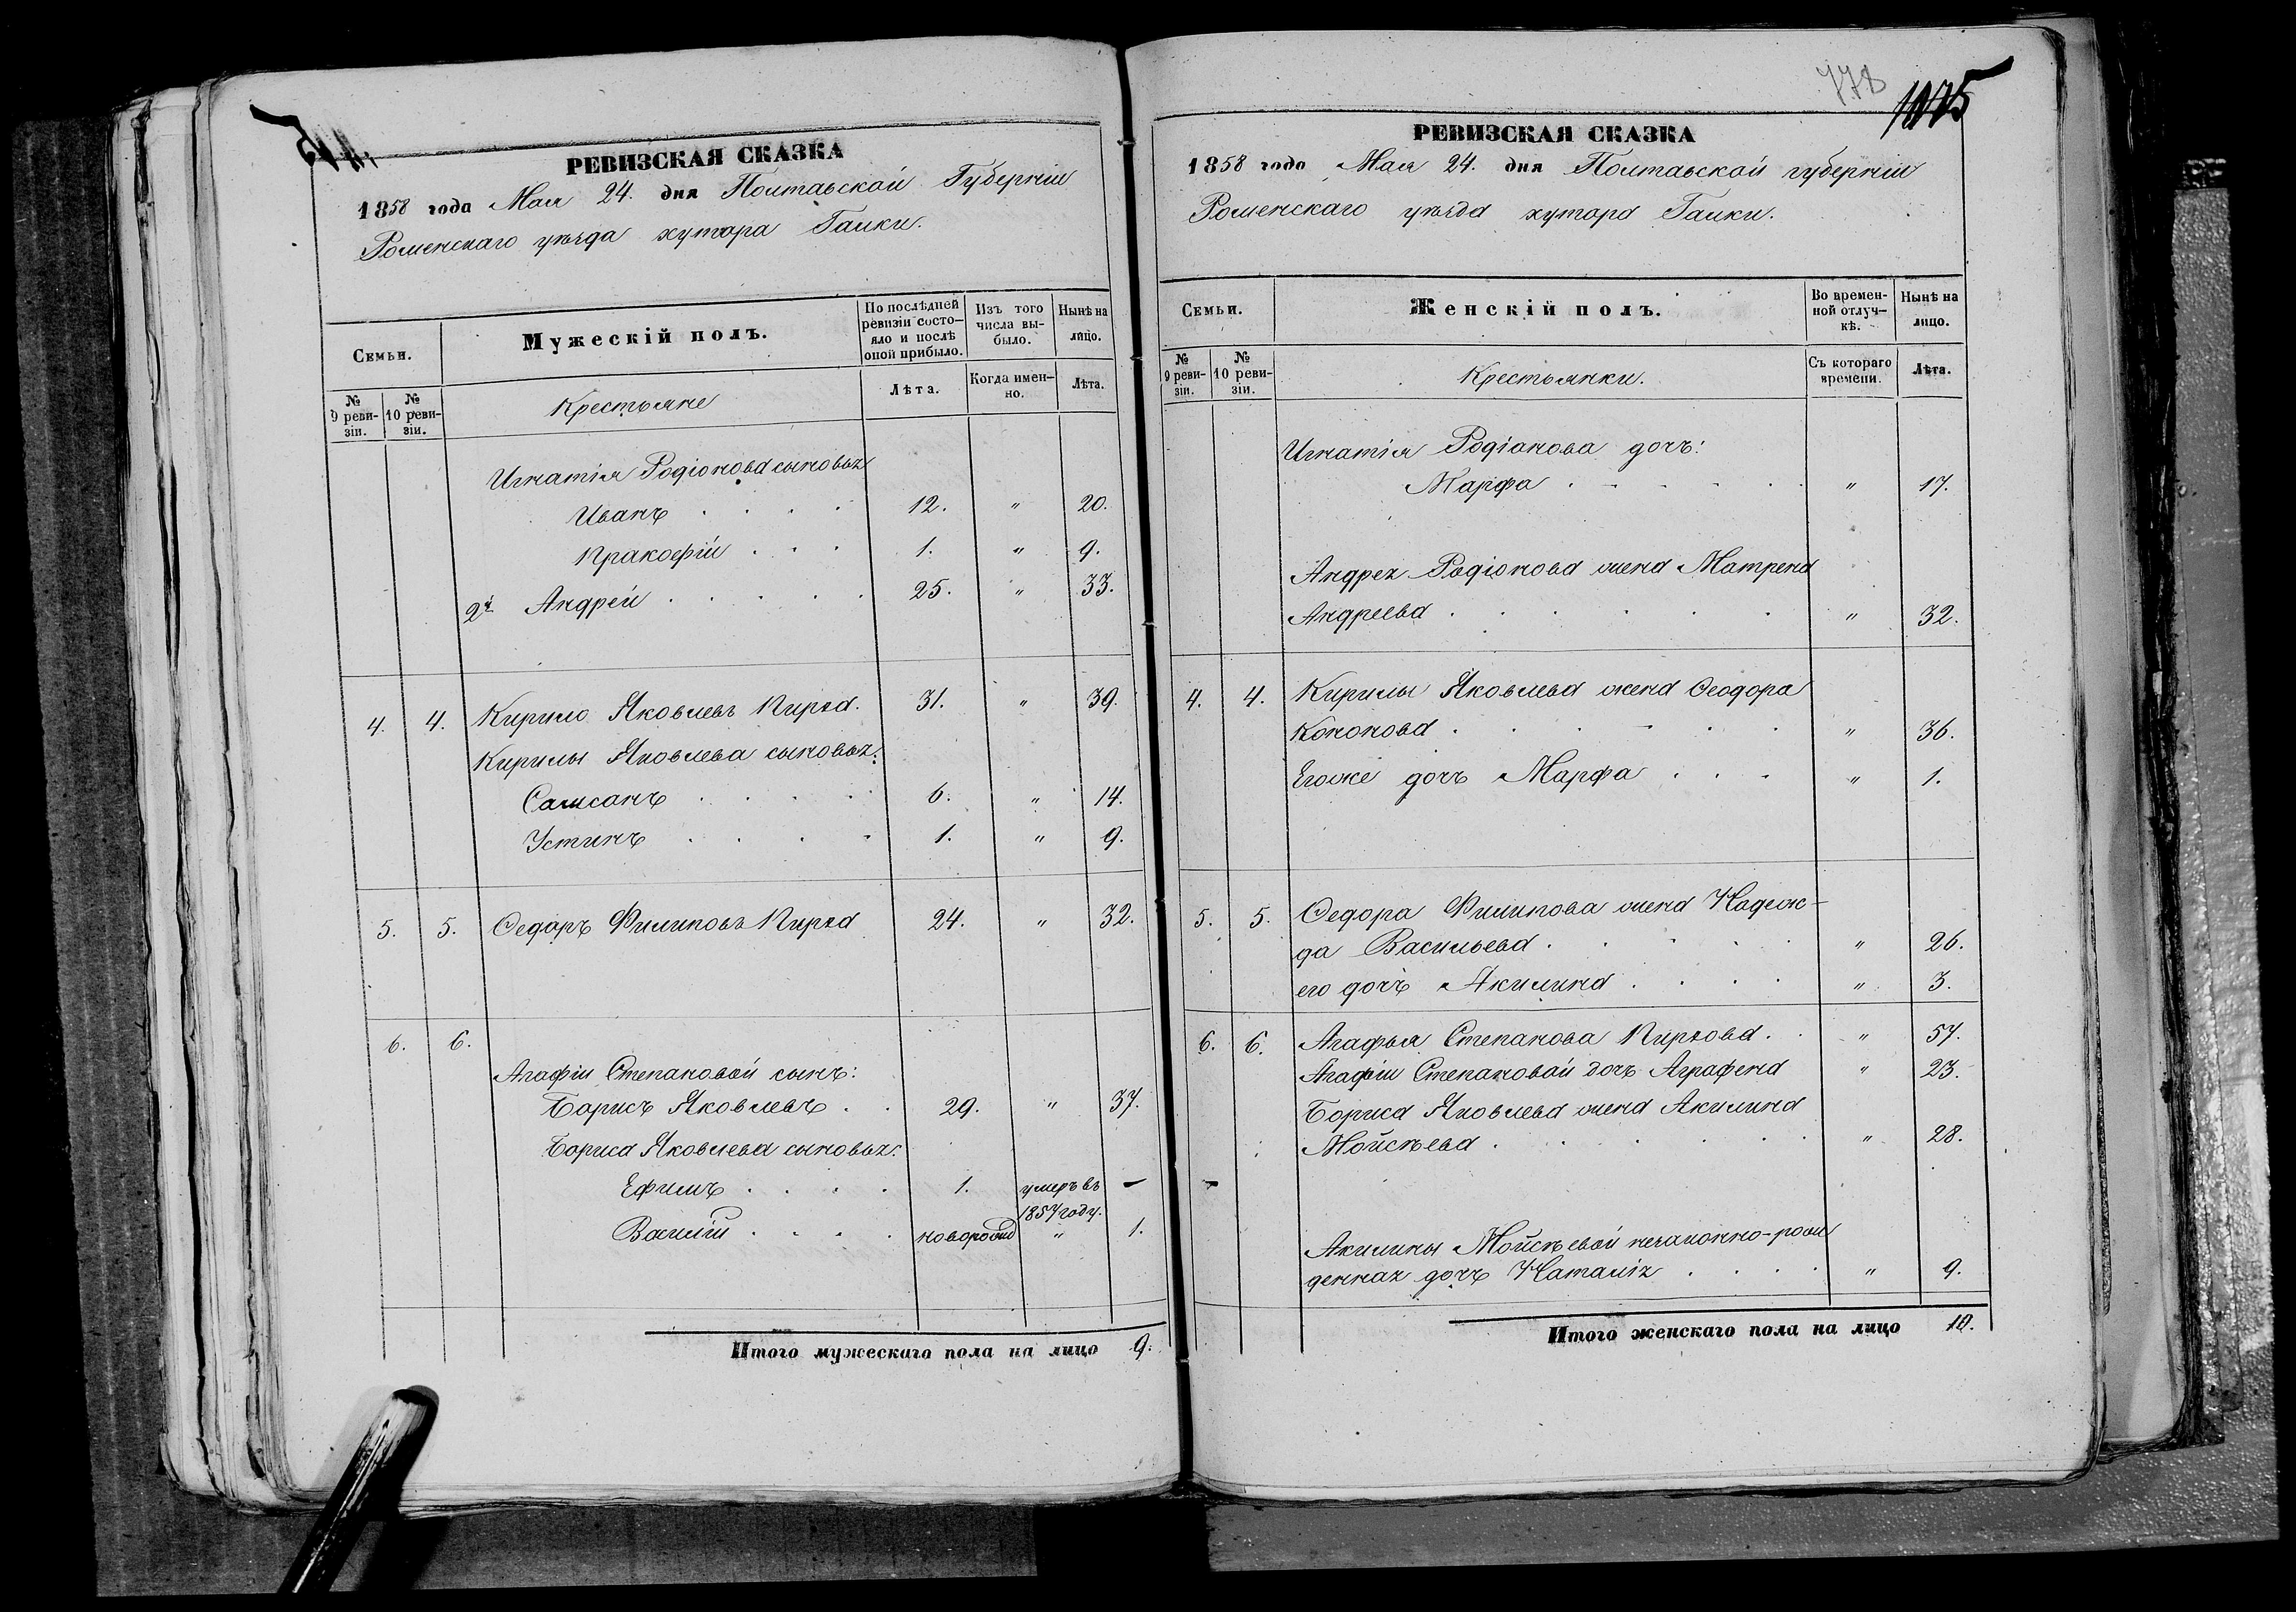 РЕВИЗСКАЯ СКАЗКА
1858 года Мая 24. дня Полтавской Губерніи
Роменскаго уѣзда хутора Галки.
Семьи.
Мужескій полъ.
По послѣдней ревизіи состо-
яло и послѣ оной прибыло.
Изъ того числа вы-
было.
Нынѣ на лицо.
№ 9 реви-
зіи.
№ 10 реви-
зіи.
Крестьяне
Лѣта.
Когда имен-
но.
Лѣта.
Игнатія Родіонова сыновья
Иванъ 12. " 20.
Пракофій 1. " 9.
2й Андрей 25. " 33.
4. 4. Кирило Яковлевъ Пирга. 31. " 39.
Кирилы Яковлева сыновья:
Самсонъ 6. " 14.
Устинъ 1. " 9.
5. 5. Федоръ Филиповъ Пирга 24. " 32.
6. 6.
Агафіи Степановой сынъ:
Борисъ Яковлевъ 29. " 37.
Бориса Яковлева сыновья:
Ефимъ 1. умеръ въ —
1857 году.
Василій новорожд " 1.
Итого мужескаго пола на лицо 9.
778
1075
РЕВИЗСКАЯ СКАЗКА
1858 года Мая 24. дня Полтавской губерніи
Роменскаго уѣзда хутора Галки.
Семьи.
Женскій полъ.
Во времен-
ной отлуч-
кѣ.
Нынѣ на лицо.
№ 9 реви-
зіи.
№ 10 реви-
зіи.
Крестьянки.
Съ котораго времени.
Лѣта.
Игнатія Родіонова дочь:
Марфа " 17.
Андрея Родіонова жена Матрена
Андреева " 32.
4. 4. Кирилы Яковлева жена Феодора
Кононова " 36.
Егоже дочь Марфа " 1.
5. 5. Федора Филипова жена Надеж-
да Васильева " 26.
его дочь Акилина " 3.
6. 6. Агафья Степанова Пиргова. " 57.
Агафіи Степановой дочь Аграфена " 23.
Бориса Яковлева жена Акилина
Мойсѣева " 28.
Акилины Мойсѣевой незаконно-рож
денная дочь Наталія " 9.
Итого женскаго пола на лицо 10.